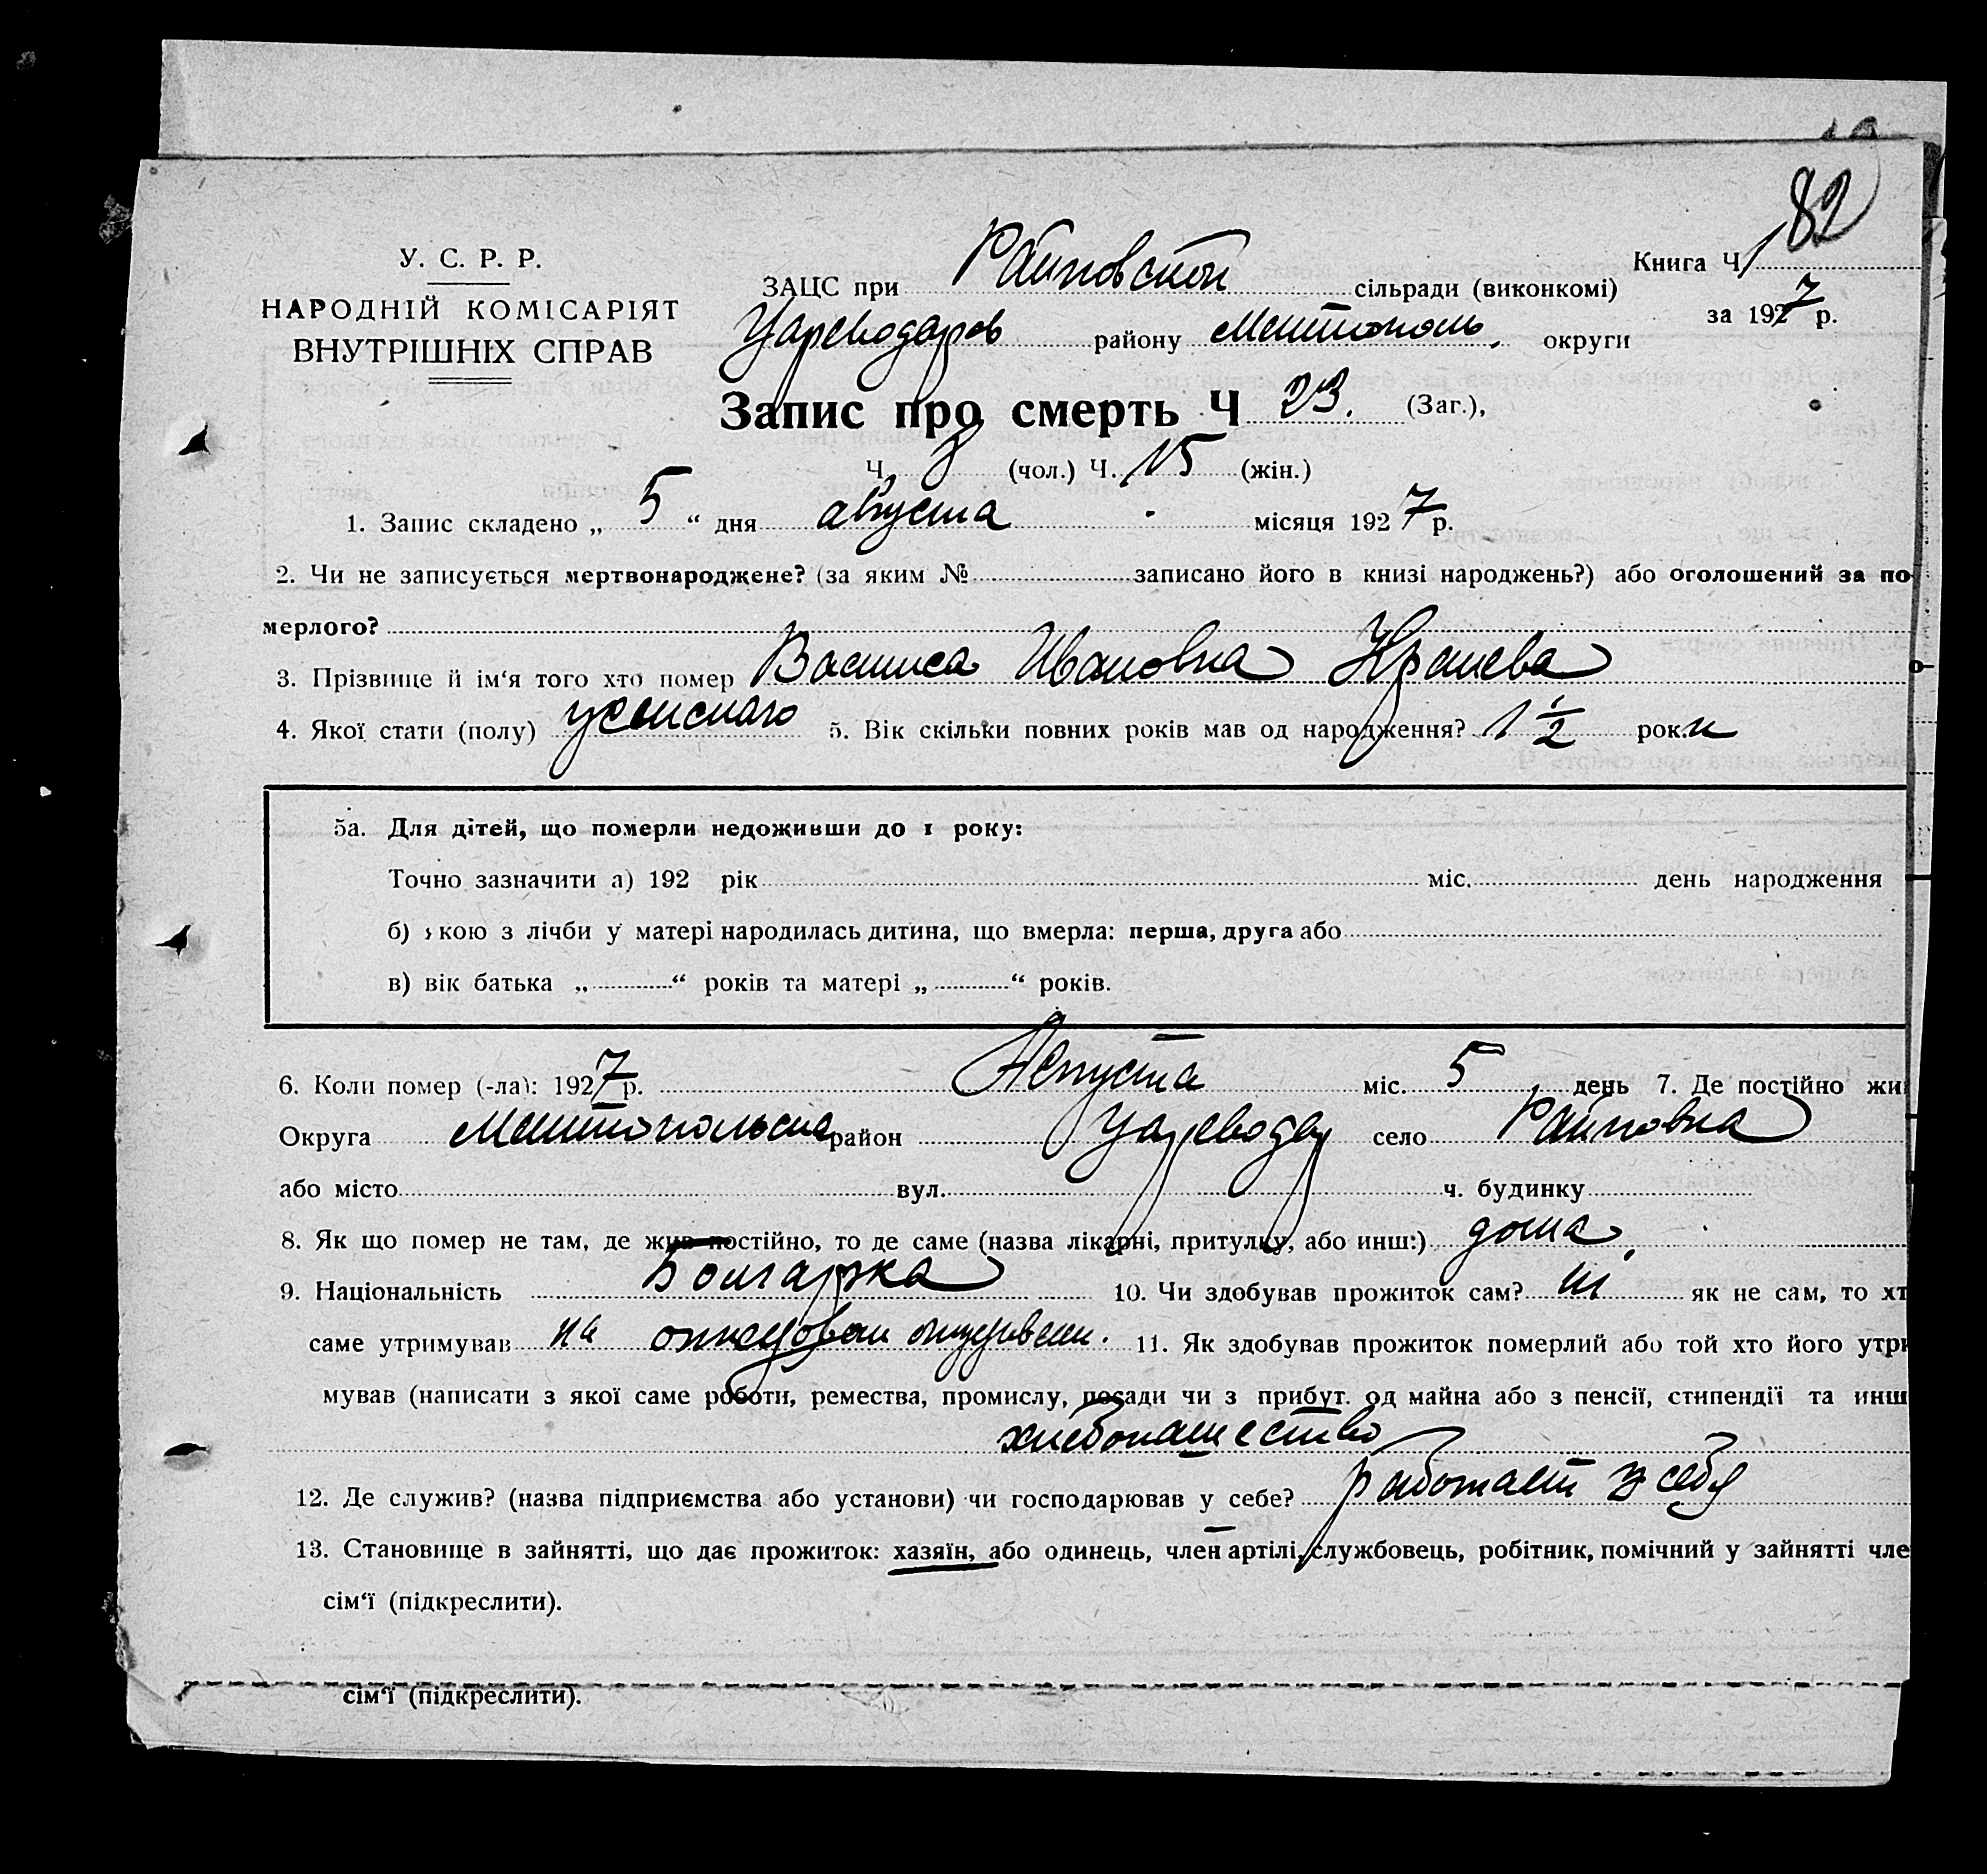 82
У. С. Р. Р.
НАРОДНІЙ КОМІСАРІЯТ
ВНУТРІШНІХ СПРАВ
Книга Ч 1
за 1927 р.
ЗАЦС при Райновской сільради (виконкомі)
Цареводаров району Мелитополь. округи
Запис про смерть Ч 23. (Заг.),
Ч. 8 (чол.) Ч. 15 (жін.)
1. Запис складено „ 5 “ дня августа місяця 1927 р.
2. Чи не записується мертвонароджене? (за яким № записано його в книзі народжень?) або оголошений за по-
мерлого?
3. Прізвище й ім‘я того хто помер Василиса Ивановна
4. Якої стати (полу) женскаго 5. Вік скільки повних років мав од народження? 1 1/2 рок.и
5а. Для дітей, що померли недоживши до 1 року:
Точно зазначити а) 192 рік міс. день народження
б) якою з лічби у матері народилась дитина, що вмерла: перша, друга або
в) вік батька „ “ років та матері „ “ років.
6. Коли помер (-ла): 1927 р. Августа міс. 5 день 7. Де постійно жи
Округа Мелитопольска район Цареводар село Райновка
або місто вул. ч. будинку
8. Як що помер не там, де жив постійно, то де саме (назва лікарні, притулку, або инш:) дома.
9. Національність Болгарка 10. Чи здобував прожиток сам? як не сам, то хт
саме утримував на 11. Як здобував прожиток померлий або той хто його утри
мував (написати з якої саме роботи, ремества, промислу, посади чи з прибут. од майна або з пенсії, стипендії та инш
хлебопашество
12. Де служив? (назва підприємства або установи) чи господарював у себе? работает у себя
13. Становище в зайнятті, що дає прожиток: хазяїн, або одинець, член артілі, службовець, робітник, помічний у зайнятті чле
сім‘ї (підкреслити).
сім‘ї (підкреслити).